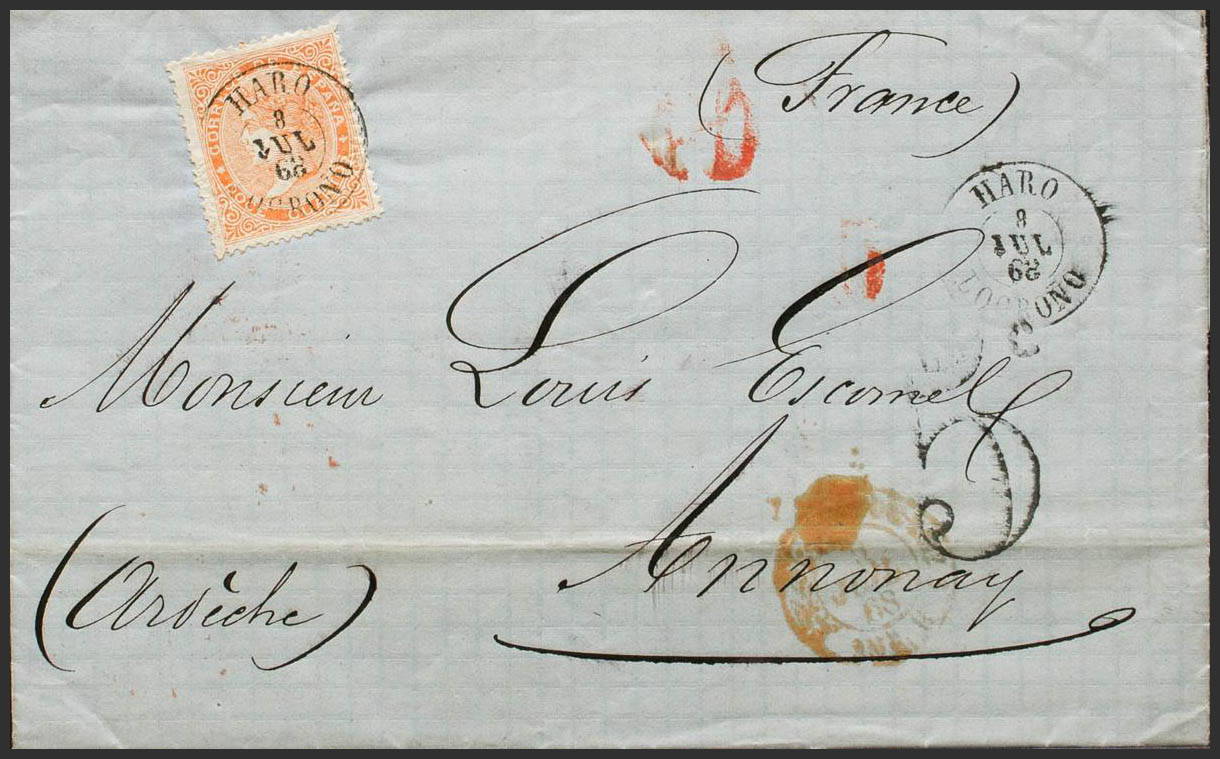 (France)
HARO
8
JUL
68
LOGROÑO
CORREOS ESPAÑA
HARO
8
JUL
68
LOGROÑO
Monsieur Louis Escomel
Annonay
(Ardèche)
68